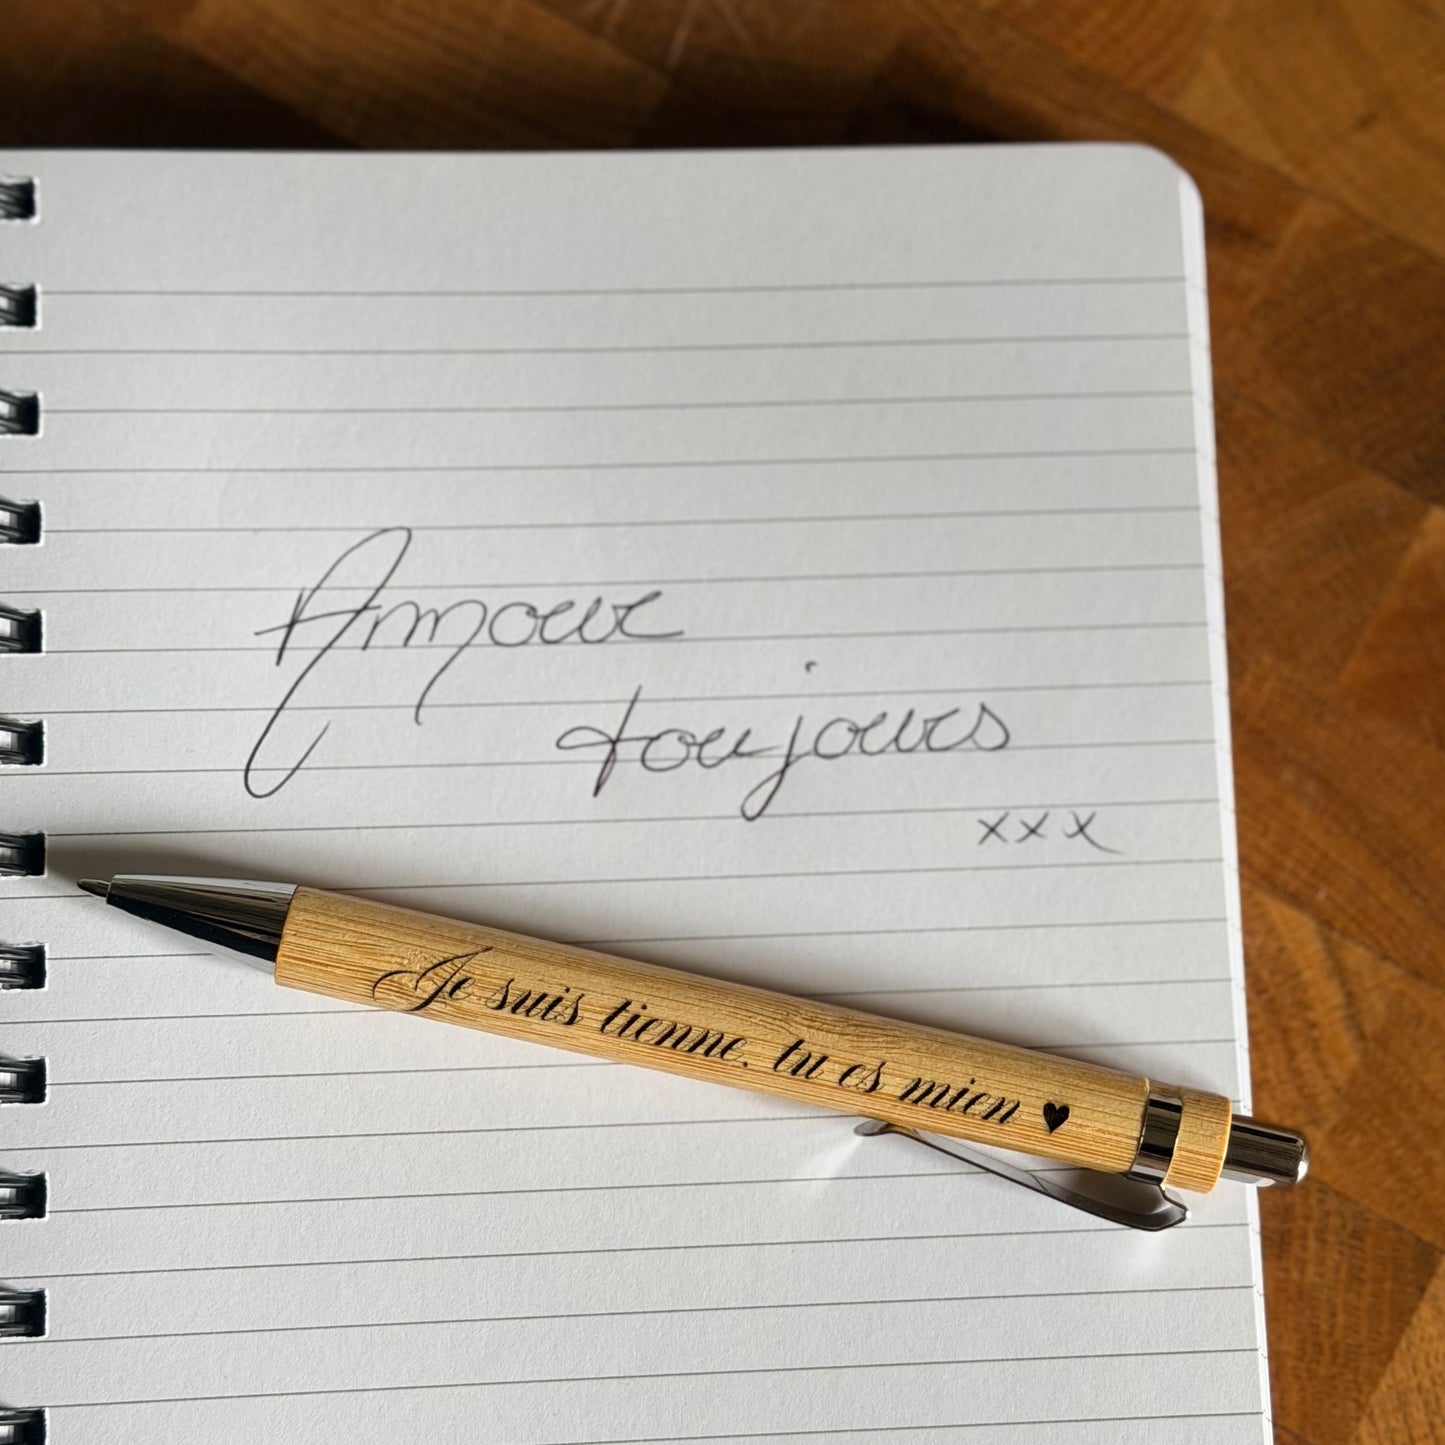 Amour
toujours
xxx
Je suis tienne, tu es mien ♥